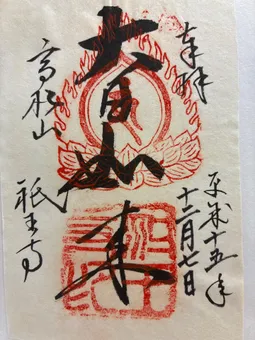 奉拝
平成十五年
十二月七日
大日如来
高松山
祇王寺